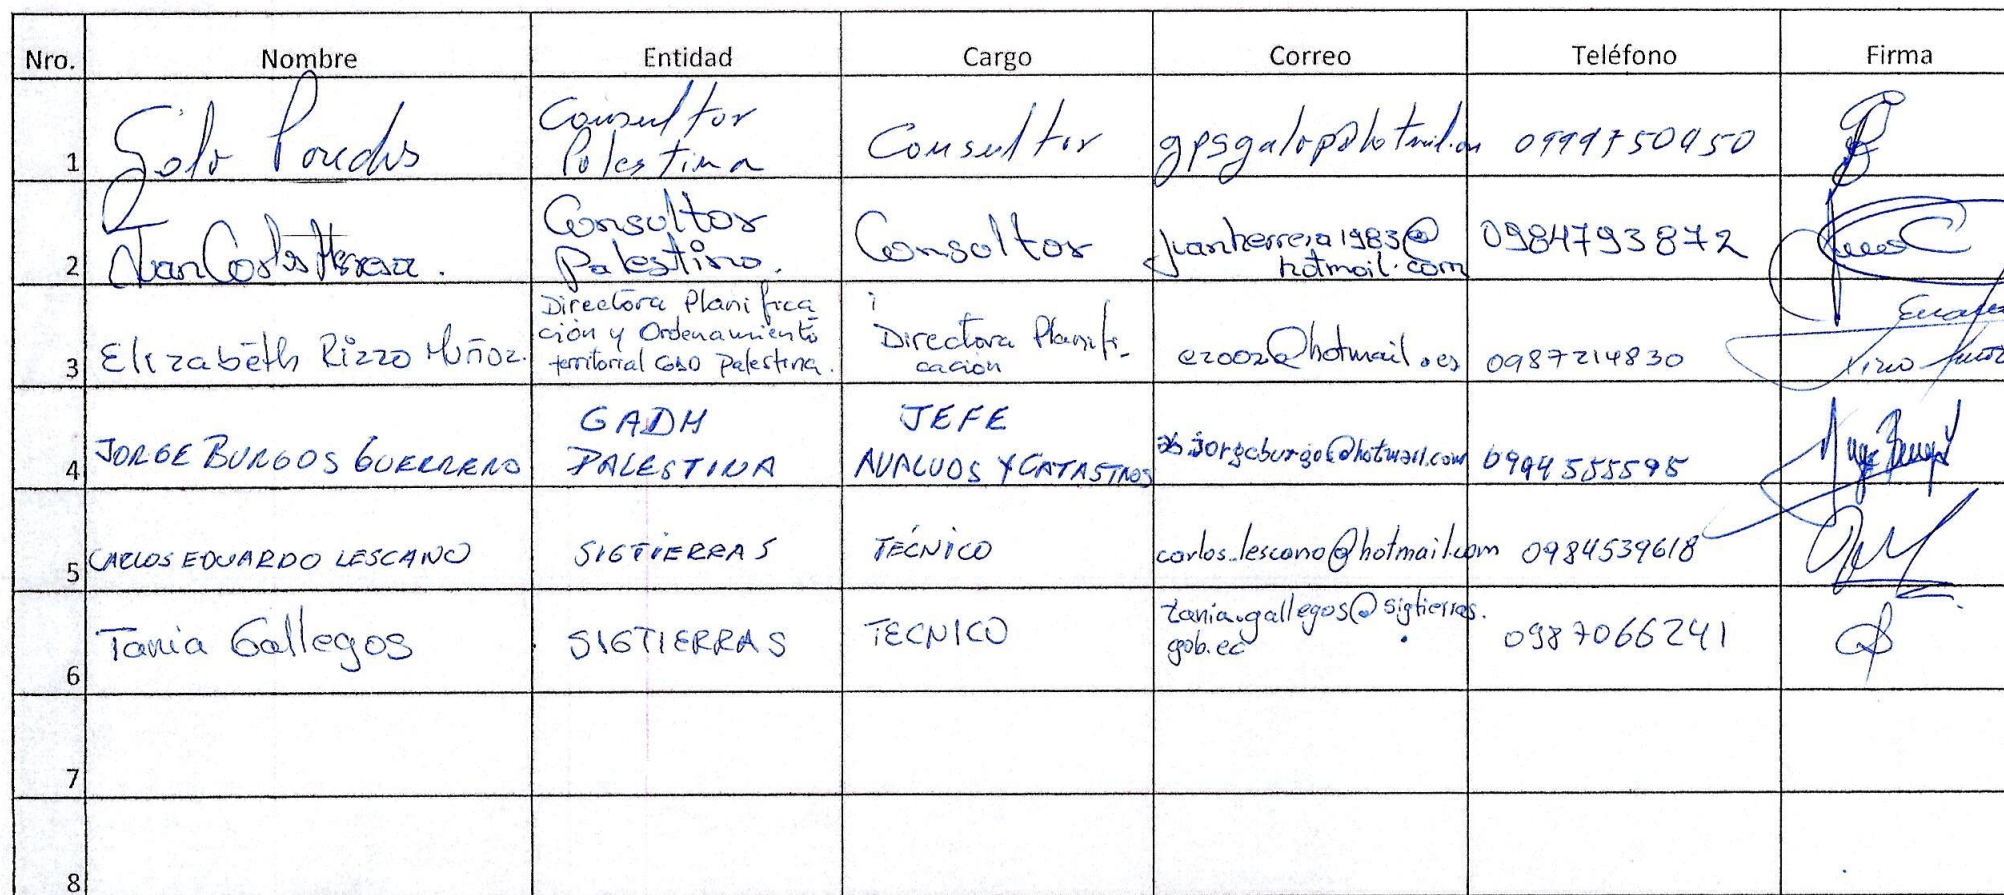 Nro. Nombre Entidad Cargo Correo Teléfono Firma
1 Consultor Palestina Consultor 
2 Juan Carlos Herrera. Consultor Palestina. Consultor juanherrera1983@hotmail.com 0984793872
3 Elizabeth Rizzo Muñoz. Directora Planificación y Ordenamiento territorial GAD Palestina. Directora Planificación 0987214830
4 JORGE BURGOS GUERRERO GADM PALESTINA JEFE AVALUOS Y CATASTROS 0994555595
5 CARLOS EDUARDO LESCANO SIGTIERRAS TÉCNICO carlos_lescano@hotmail.com 0984539618
6 Tania Gallegos SIGTIERRAS TECNICO tania.gallegos@sigtierras.gob.ec 0987066241
7
8